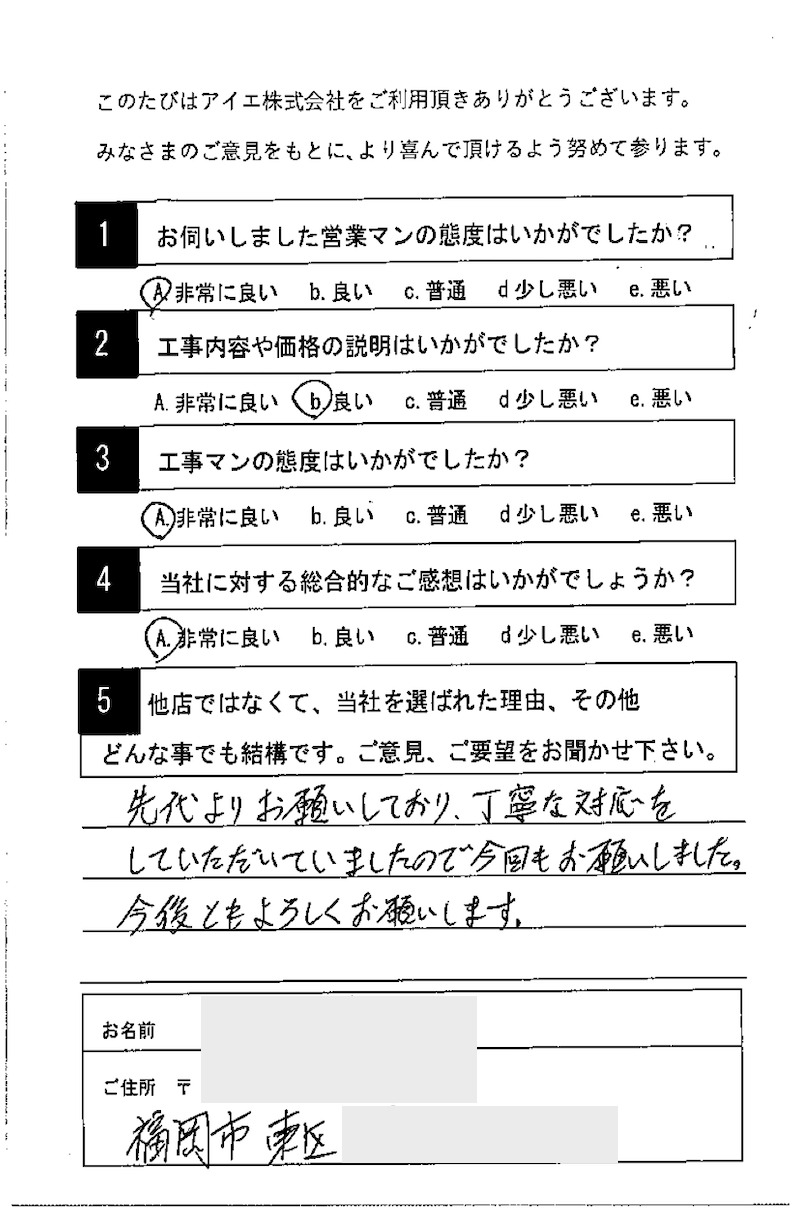 このたびはアイエ株式会社をご利用頂きありがとうございます。
みなさまのご意見をもとに、より喜んで頂けるよう努めて参ります。
1 お伺いしました営業マンの態度はいかがでしたか？
A.非常に良い b.良い c.普通 d少し悪い e.悪い
2 工事内容や価格の説明はいかがでしたか？
A.非常に良い b.良い c.普通 d少し悪い e.悪い
3 工事マンの態度はいかがでしたか？
A.非常に良い b.良い c.普通 d少し悪い e.悪い
4 当社に対する総合的なご感想はいかがでしょうか？
A.非常に良い b.良い c.普通 d少し悪い e.悪い
5 他店ではなくて、当社を選ばれた理由、その他
どんな事でも結構です。ご意見、ご要望をお聞かせ下さい。
先代よりお願いしており、丁寧な対応を
していただいていましたので今回もお願いしました。
今後ともよろしくお願いします。
お名前
ご住所 〒
福岡市東区